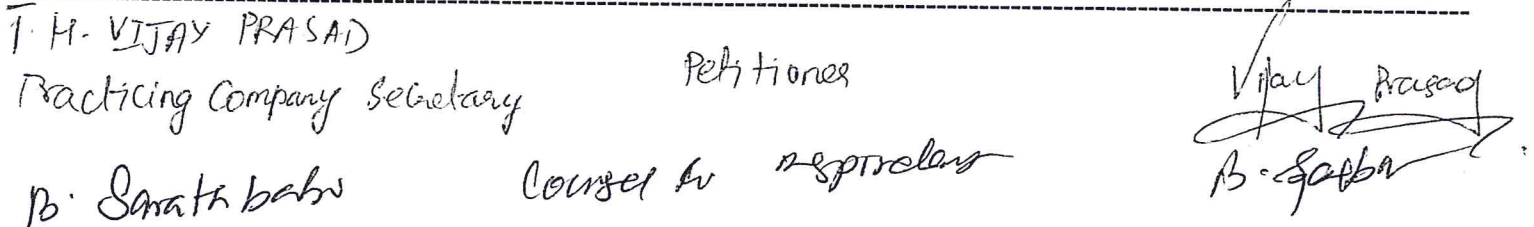 T. H. VIJAY PRASAD
Practicing Company Secretary Petitioner Vijay Prasad
B. Sarath babu Counsel for respondent B. Sarath